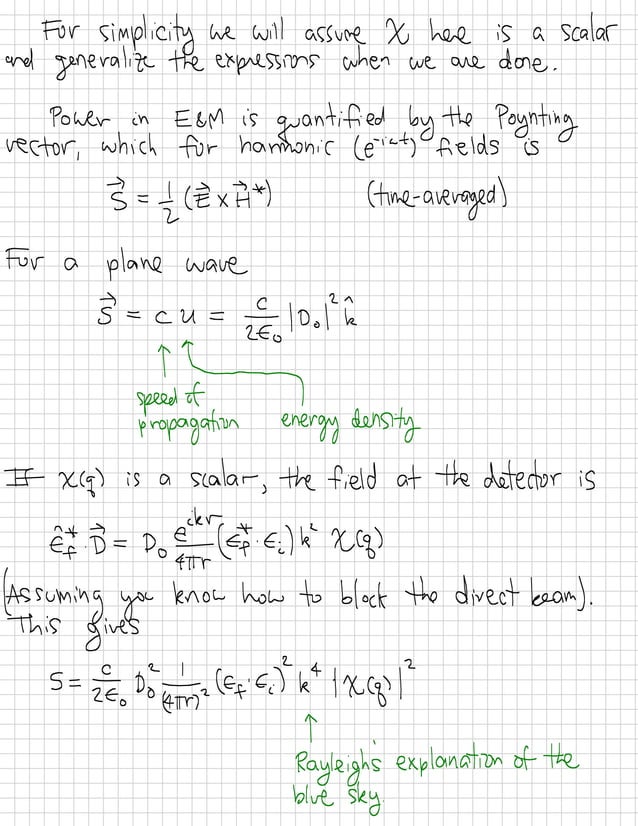 For simplicity we will assure χ here is a scalar
and generalize the expressions when we are done.
Power in E&M is quantified by the Poynting
vector, which for harmonic (e^{-iωt}) fields is
S⃗ = 1/2 (E⃗ × H⃗*) (time-averaged)
For a plane wave
S⃗ = c u = c/2ε₀ |D₀|² k̂
speed of
propagation energy density
If χ(q) is a scalar, the field at the detector is
ε̂_f* · D⃗ = D₀ e^{ikr}/4πr (ε_f* · ε_i) k² χ(q)
(Assuming you know how to block the direct beam).
This gives
S = c/2ε₀ D₀² 1/(4πr)² (ε_f · ε_i)² k⁴ |χ(q)|²
Rayleigh's explanation of the
blue sky.